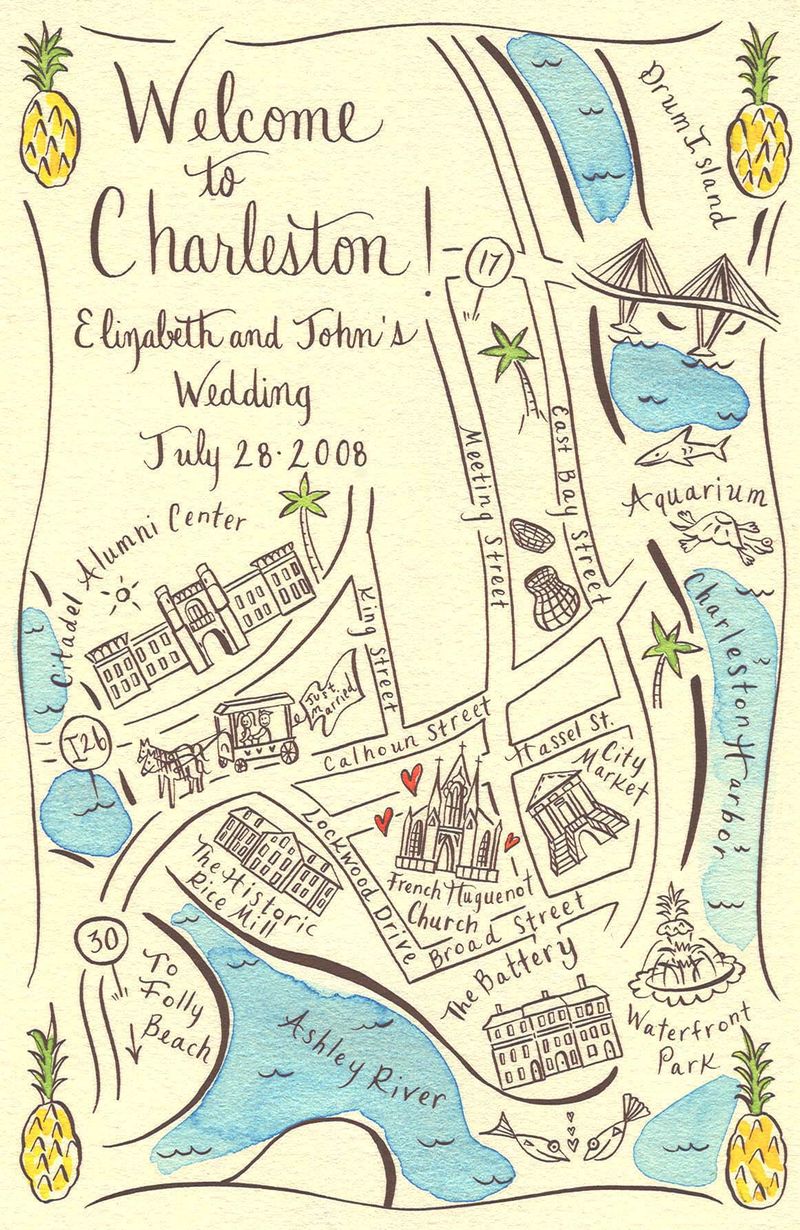 Welcome
to
Charleston!
Elizabeth and John's
Wedding
July 28·2008
Drum Island
17
Meeting Street
East Bay Street
Aquarium
Citadel Alumni Center
King Street
Charleston Harbor
I26
Just
Married
Calhoun Street
Hassel St.
City
Market
Lockwood Drive
The Historic
Rice Mill
French Huguenot
Church
Broad Street
30
To
Folly
Beach
The Battery
Ashley River
Waterfront
Park